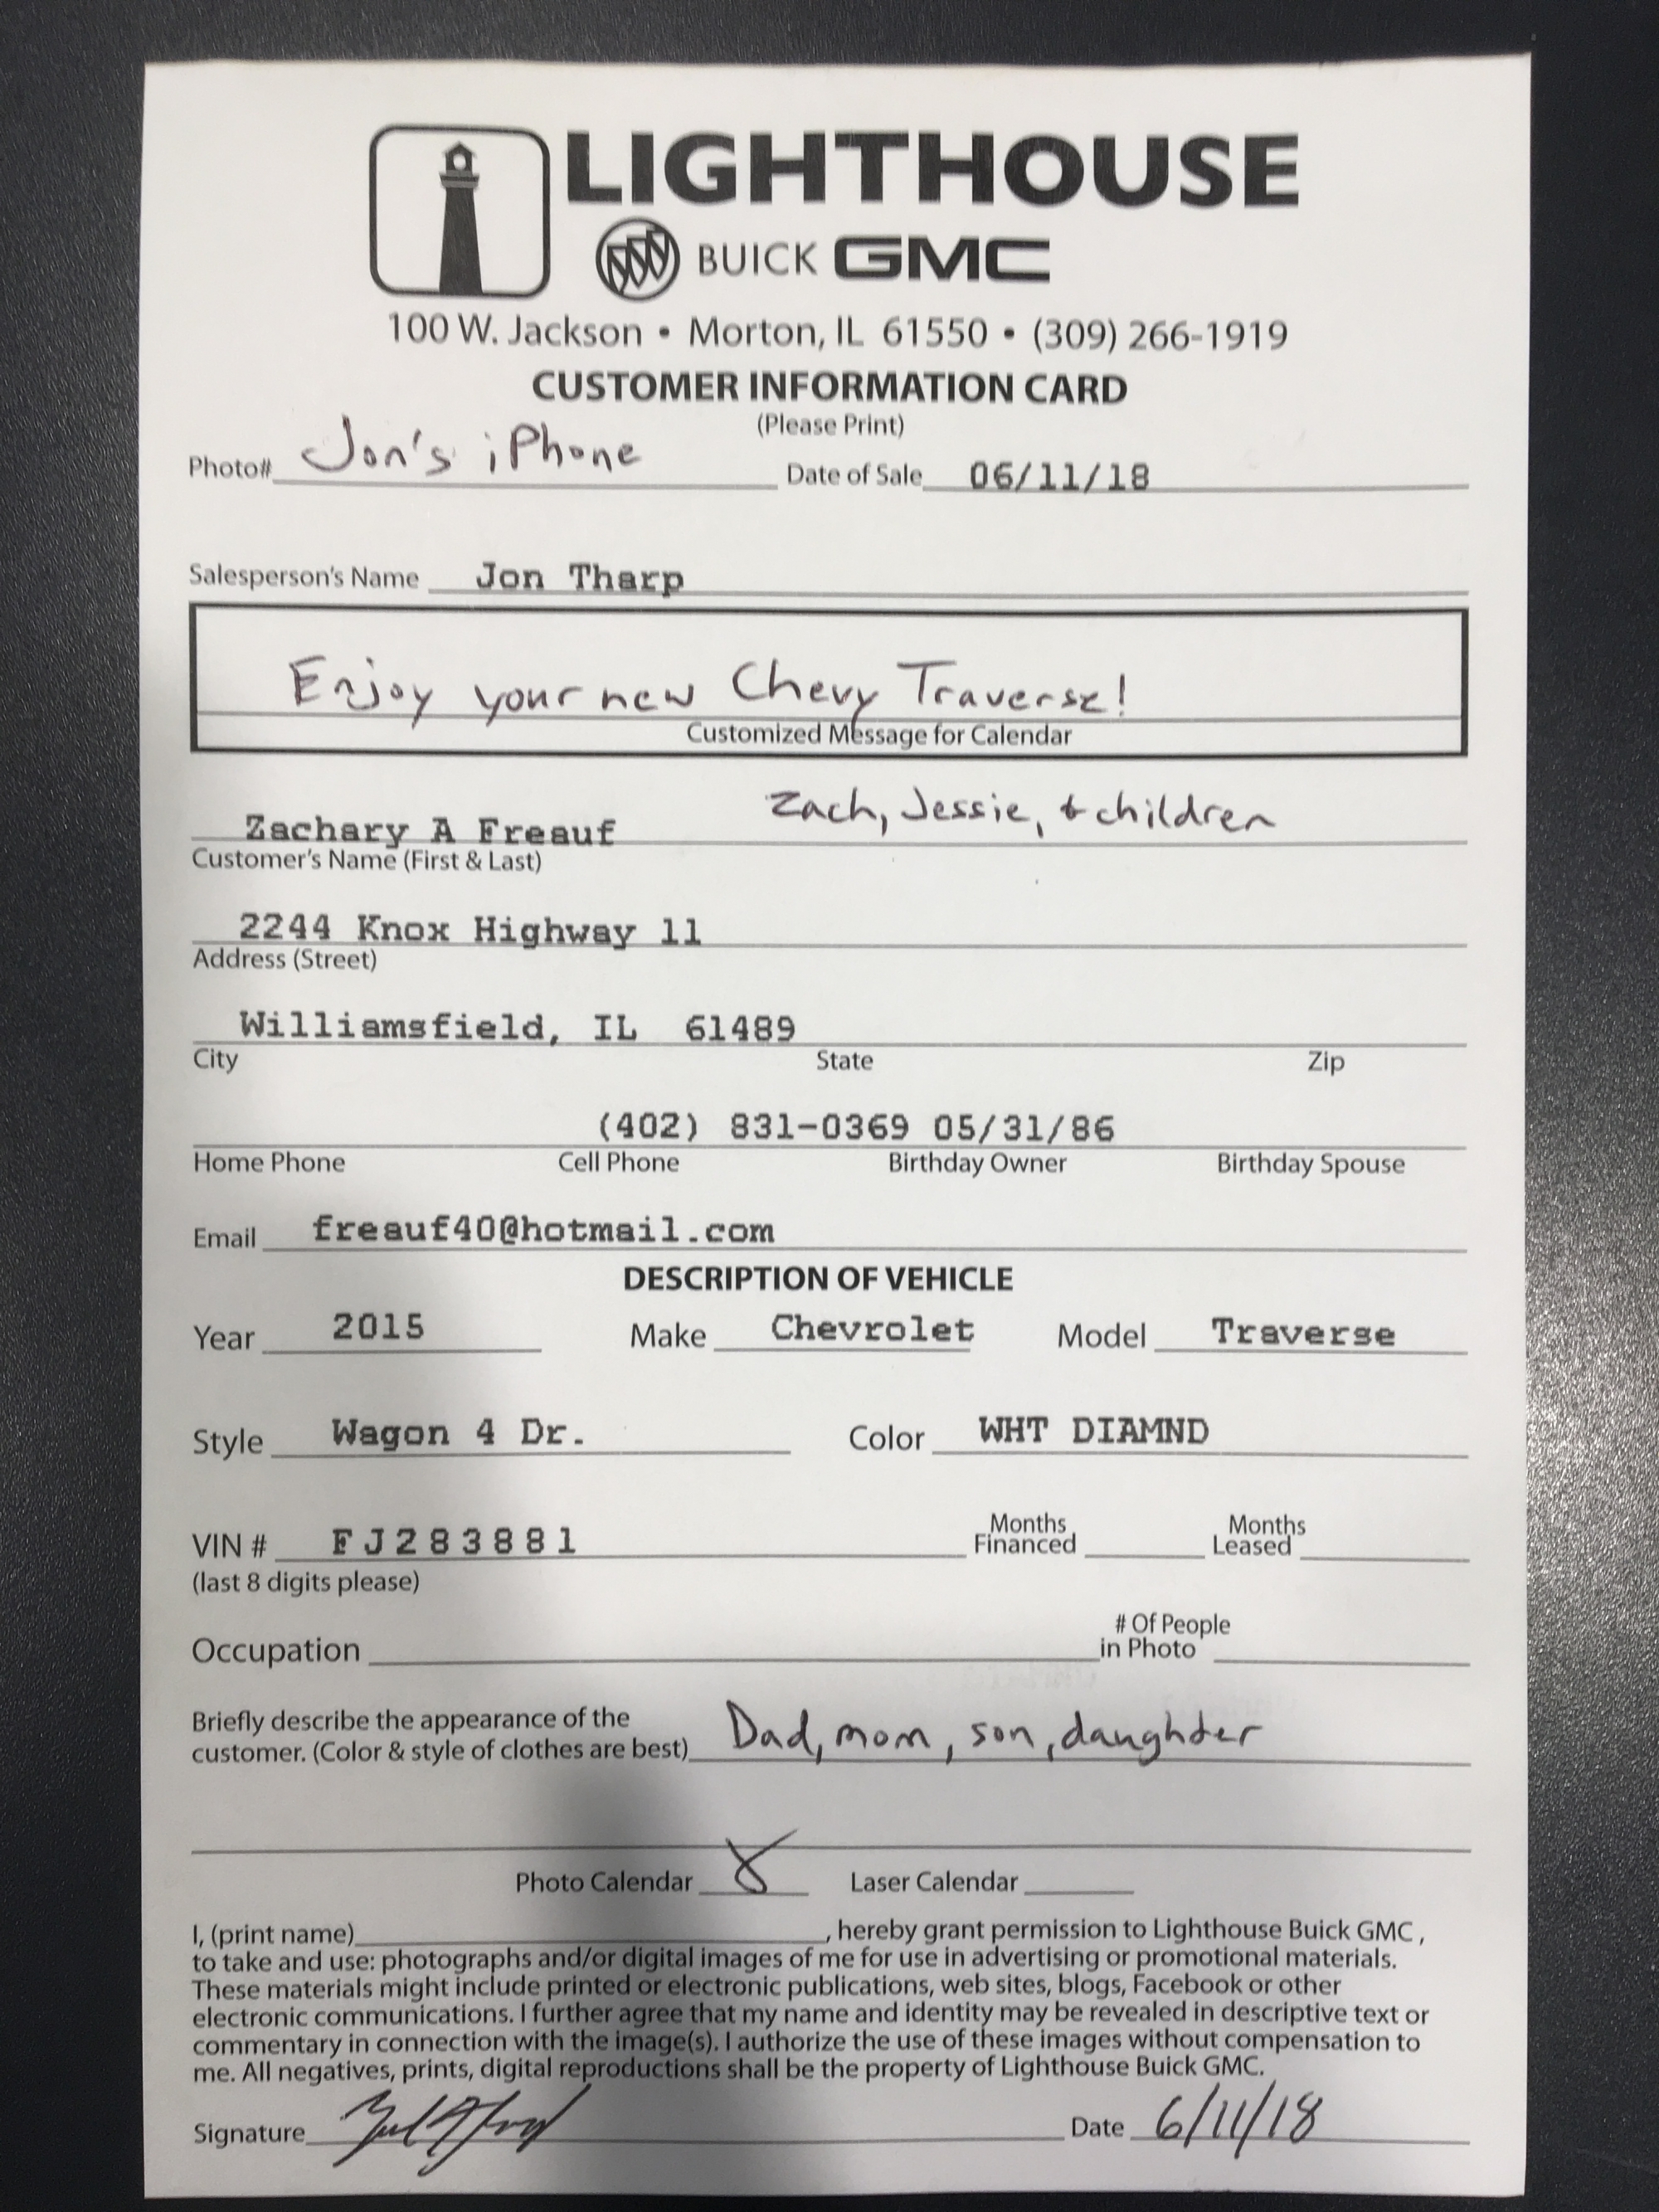 LIGHTHOUSE
BUICK GMC
100 W. Jackson • Morton, IL 61550 • (309) 266-1919
CUSTOMER INFORMATION CARD
(Please Print)
Photo# Jon's iPhone Date of Sale 06/11/18
Salesperson's Name Jon Tharp
Enjoy your new Chevy Traverse!
Customized Message for Calendar
Zachary A Freauf Zach, Jessie, + children
Customer's Name (First & Last)
2244 Knox Highway 11
Address (Street)
Williamsfield, IL 61489
City State Zip
(402) 831-0369 05/31/86
Home Phone Cell Phone Birthday Owner Birthday Spouse
Email freauf40@hotmail.com
DESCRIPTION OF VEHICLE
Year 2015 Make Chevrolet Model Traverse
Style Wagon 4 Dr. Color WHT DIAMND
VIN # FJ283881 Months Financed Months Leased
(last 8 digits please)
Occupation # Of People in Photo
Briefly describe the appearance of the
customer. (Color & style of clothes are best) Dad, mom, son, daughter
Photo Calendar X Laser Calendar
I, (print name) , hereby grant permission to Lighthouse Buick GMC,
to take and use: photographs and/or digital images of me for use in advertising or promotional materials.
These materials might include printed or electronic publications, web sites, blogs, Facebook or other
electronic communications. I further agree that my name and identity may be revealed in descriptive text or
commentary in connection with the image(s). I authorize the use of these images without compensation to
me. All negatives, prints, digital reproductions shall be the property of Lighthouse Buick GMC.
Signature Date 6/11/18